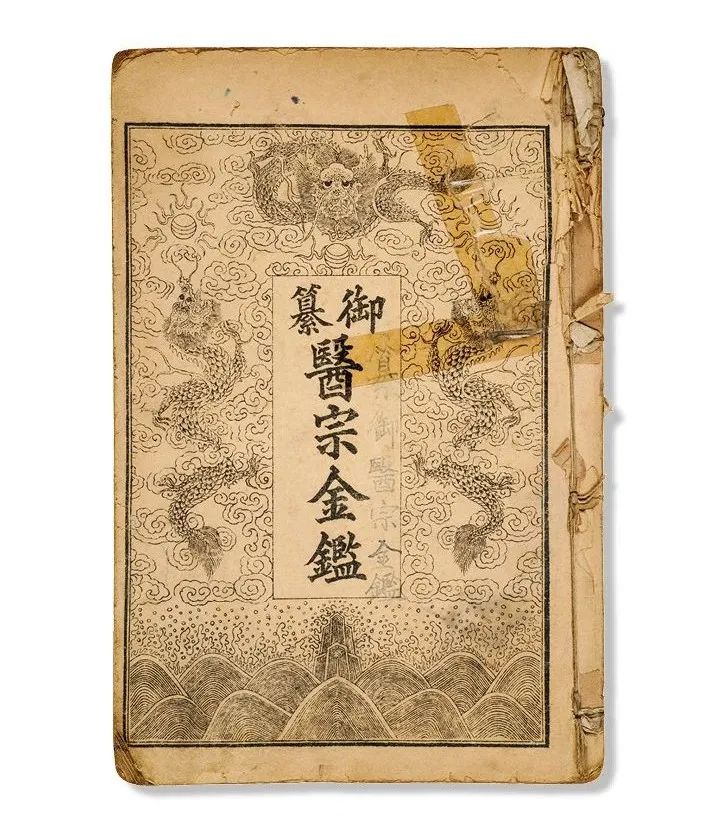 御纂
醫宗金鑑
御醫宗金鑑